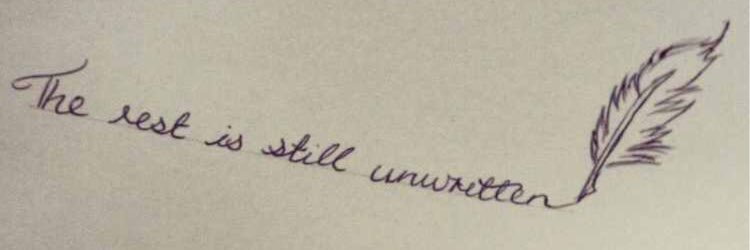 The rest is still unwritten